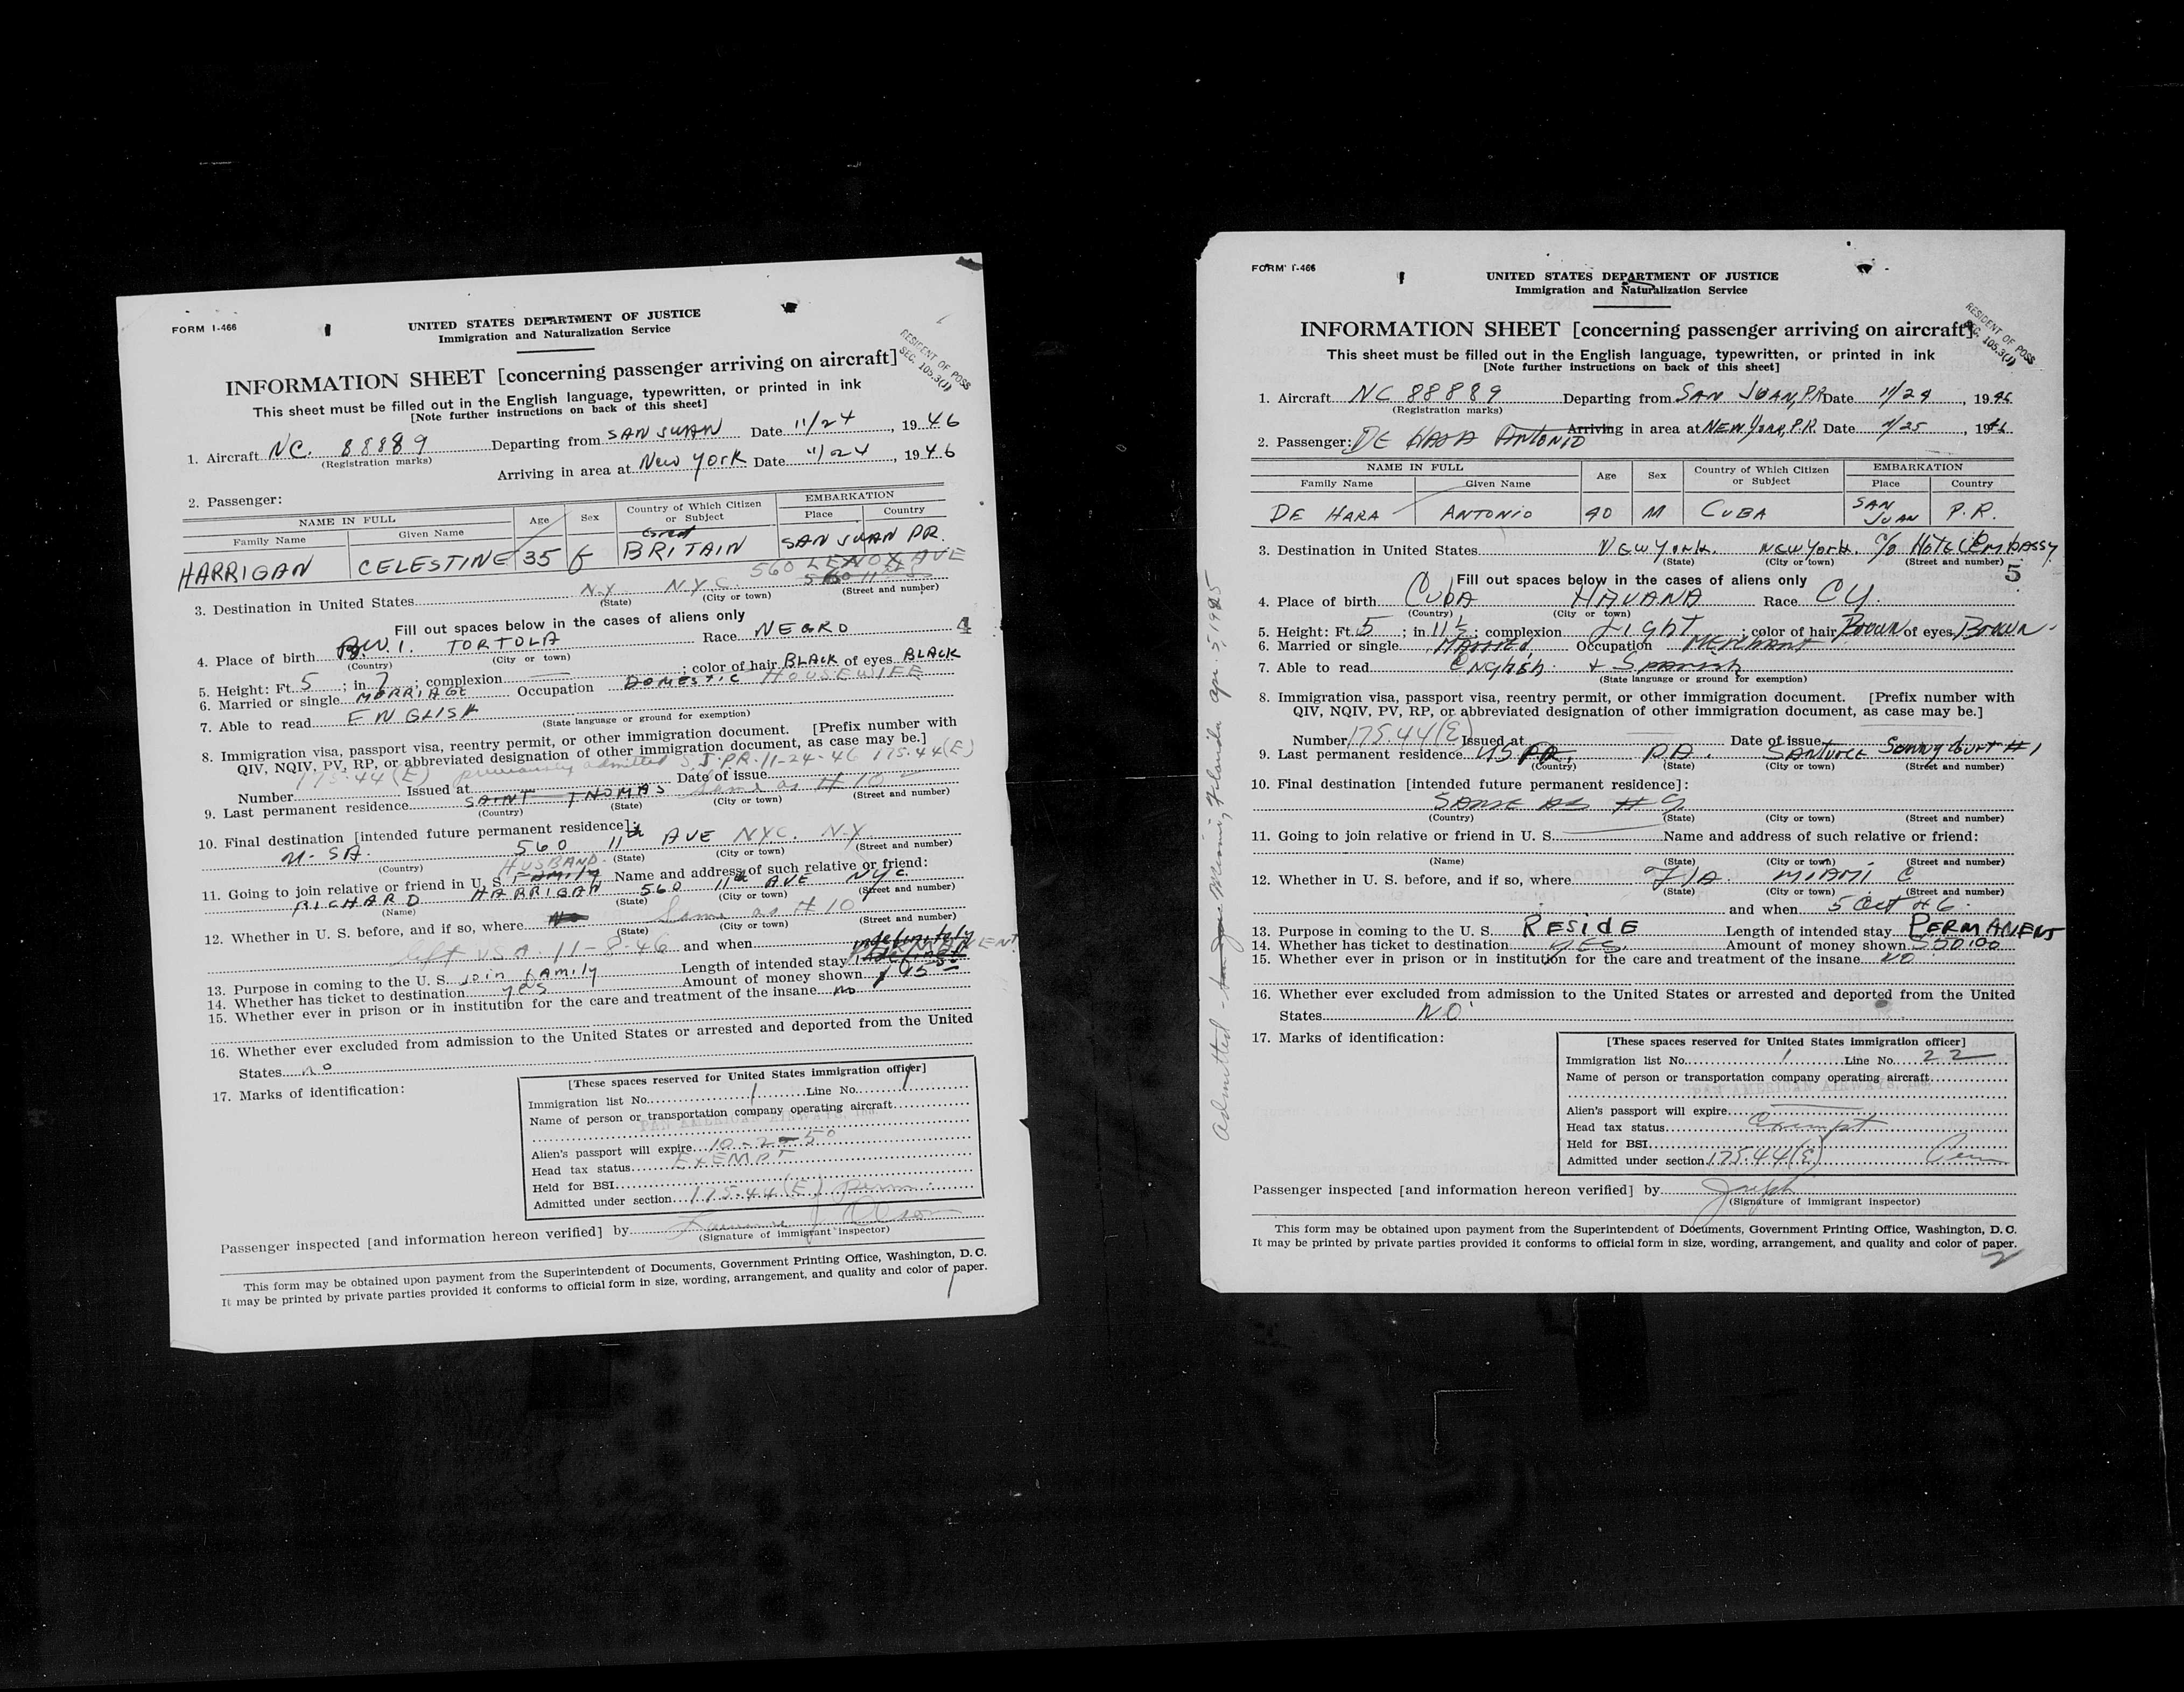 FORM I-466
UNITED STATES DEPARTMENT OF JUSTICE
Immigration and Naturalization Service
RESIDENT OF POSS
SEC. 105.3(J)
INFORMATION SHEET [concerning passenger arriving on aircraft]
This sheet must be filled out in the English language, typewritten, or printed in ink
[Note further instructions on back of this sheet]
1. Aircraft NC. 88889 Departing from SAN JUAN Date 11/24, 1946
(Registration marks)
Arriving in area at New York Date 11/24, 1946
2. Passenger:
NAME IN FULL Age Sex Country of Which Citizen or Subject EMBARKATION
Family Name Given Name Place Country
HARRIGAN CELESTINE 35 f Great BRITAIN SAN JUAN PR.
560 LENOX AVE
3. Destination in United States N.Y. N.Y.C.
(State) (City or town) (Street and number)
Fill out spaces below in the cases of aliens only
4. Place of birth B.W.I. TORTOLA Race NEGRO 4
(Country) (City or town)
5. Height: Ft. 5; in. 7; complexion —; color of hair BLACK of eyes BLACK
6. Married or single MARRIAGE Occupation DOMESTIC HOUSEWIFE
7. Able to read ENGLISH
(State language or ground for exemption)
8. Immigration visa, passport visa, reentry permit, or other immigration document. [Prefix number with
QIV, NQIV, PV, RP, or abbreviated designation of other immigration document, as case may be.]
previously admitted S.J. P.R. 11-24-46 175.44(E)
Number 175.44(E) Issued at Date of issue
9. Last permanent residence SAINT THOMAS Same as # 10
(Country) (State) (City or town) (Street and number)
10. Final destination [intended future permanent residence]:
U.SA. 560 11th AVE NYC. N.Y.
(Country) (State) (City or town) (Street and number)
HUSBAND.
11. Going to join relative or friend in U. S. Family Name and address of such relative or friend:
RICHARD HARRIGAN 560 11th AVE NYC
(Name) (State) (City or town) (Street and number)
12. Whether in U. S. before, and if so, where No Same as # 10
(State) (City or town) (Street and number)
left USA. 11-8-46 and when
indefinitely
13. Purpose in coming to the U. S. join family Length of intended stay PERMANENT
14. Whether has ticket to destination yes Amount of money shown
15. Whether ever in prison or in institution for the care and treatment of the insane no
16. Whether ever excluded from admission to the United States or arrested and deported from the United
States no
17. Marks of identification:
[These spaces reserved for United States immigration officer]
Immigration list No. 1 Line No. 1
Name of person or transportation company operating aircraft
PAN AMERICAN AIRWAYS, Inc.
Alien's passport will expire 10-2-50
Head tax status EXEMPT
Held for BSI
Admitted under section 175.44(E) Perm.
Passenger inspected [and information hereon verified] by
(Signature of immigrant inspector)
This form may be obtained upon payment from the Superintendent of Documents, Government Printing Office, Washington, D. C.
It may be printed by private parties provided it conforms to official form in size, wording, arrangement, and quality and color of paper.
1
FORM I-466
UNITED STATES DEPARTMENT OF JUSTICE
Immigration and Naturalization Service
RESIDENT OF POSS
SEC. 105.3(J)
INFORMATION SHEET [concerning passenger arriving on aircraft]
This sheet must be filled out in the English language, typewritten, or printed in ink
[Note further instructions on back of this sheet]
1. Aircraft NC 88889 Departing from SAN JUAN, P.R. Date 11/24, 1946
(Registration marks)
Arriving in area at NEW YORK, P.R. Date 11/25, 1946
2. Passenger: DE HARA ANTONIO
NAME IN FULL Age Sex Country of Which Citizen or Subject EMBARKATION
Family Name Given Name Place Country
DE HARA ANTONIO 40 M CUBA SAN JUAN P.R.
3. Destination in United States NEW YORK. NEW YORK. C/o HOTEL EMBASSY
(State) (City or town) (Street and number)
5
Fill out spaces below in the cases of aliens only
4. Place of birth CUBA HAVANA Race CU.
(Country) (City or town)
5. Height: Ft. 5; in. 11 1/2; complexion LIGHT; color of hair BROWN of eyes BROWN
6. Married or single MARRIED Occupation MERCHANT
7. Able to read ENGLISH + SPANISH
(State language or ground for exemption)
8. Immigration visa, passport visa, reentry permit, or other immigration document. [Prefix number with
QIV, NQIV, PV, RP, or abbreviated designation of other immigration document, as case may be.]
Number 175.44(E) Issued at — Date of issue
9. Last permanent residence US P.R. SANTURCE Court #1
(Country) (State) (City or town) (Street and number)
10. Final destination [intended future permanent residence]:
SAME AS # 9
(Country) (State) (City or town) (Street and number)
11. Going to join relative or friend in U. S. — Name and address of such relative or friend:
(Name) (State) (City or town) (Street and number)
12. Whether in U. S. before, and if so, where FLA. MIAMI
(State) (City or town) (Street and number)
and when 5 Oct 46
13. Purpose in coming to the U. S. RESIDE Length of intended stay PERMANENT
14. Whether has ticket to destination YES. Amount of money shown
15. Whether ever in prison or in institution for the care and treatment of the insane NO
16. Whether ever excluded from admission to the United States or arrested and deported from the United
States NO
17. Marks of identification:
[These spaces reserved for United States immigration officer]
Immigration list No. 1 Line No. 22
Name of person or transportation company operating aircraft
PAN AMERICAN AIRWAYS, Inc.
Alien's passport will expire —
Head tax status Exempt
Held for BSI
Admitted under section 175.44(E)
Passenger inspected [and information hereon verified] by
(Signature of immigrant inspector)
This form may be obtained upon payment from the Superintendent of Documents, Government Printing Office, Washington, D. C.
It may be printed by private parties provided it conforms to official form in size, wording, arrangement, and quality and color of paper.
2
Admitted - Miami, Florida Apr. 5, 1925